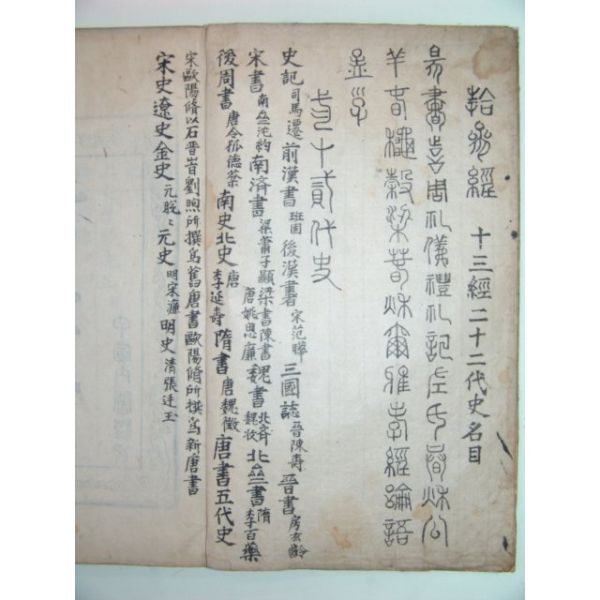 拾參經 十三經二十二代史名目
易書詩周礼儀禮礼記左氏春秋公
羊春穐穀梁春秋爾雅孝經論語
孟子
十貳代史
史記 司馬遷 前漢書 班固 後漢書 宋范曄 三國誌 晉陳壽 晉書 房玄齡
宋書 南亝沈約 南済書 梁蕭子顯 梁書陳書 唐姚思廉 魏書 北斉魏收 北亝書 隋李百藥
後周書 唐令狐德棻 南史北史 唐李延壽 隋書 唐魏徵 唐書五代史
宋歐陽脩以石晋時劉煦所撰為舊唐書歐陽脩所撰為新唐書
宋史遼史金史 元脫〻 元史 明宋濂 明史 清張廷玉